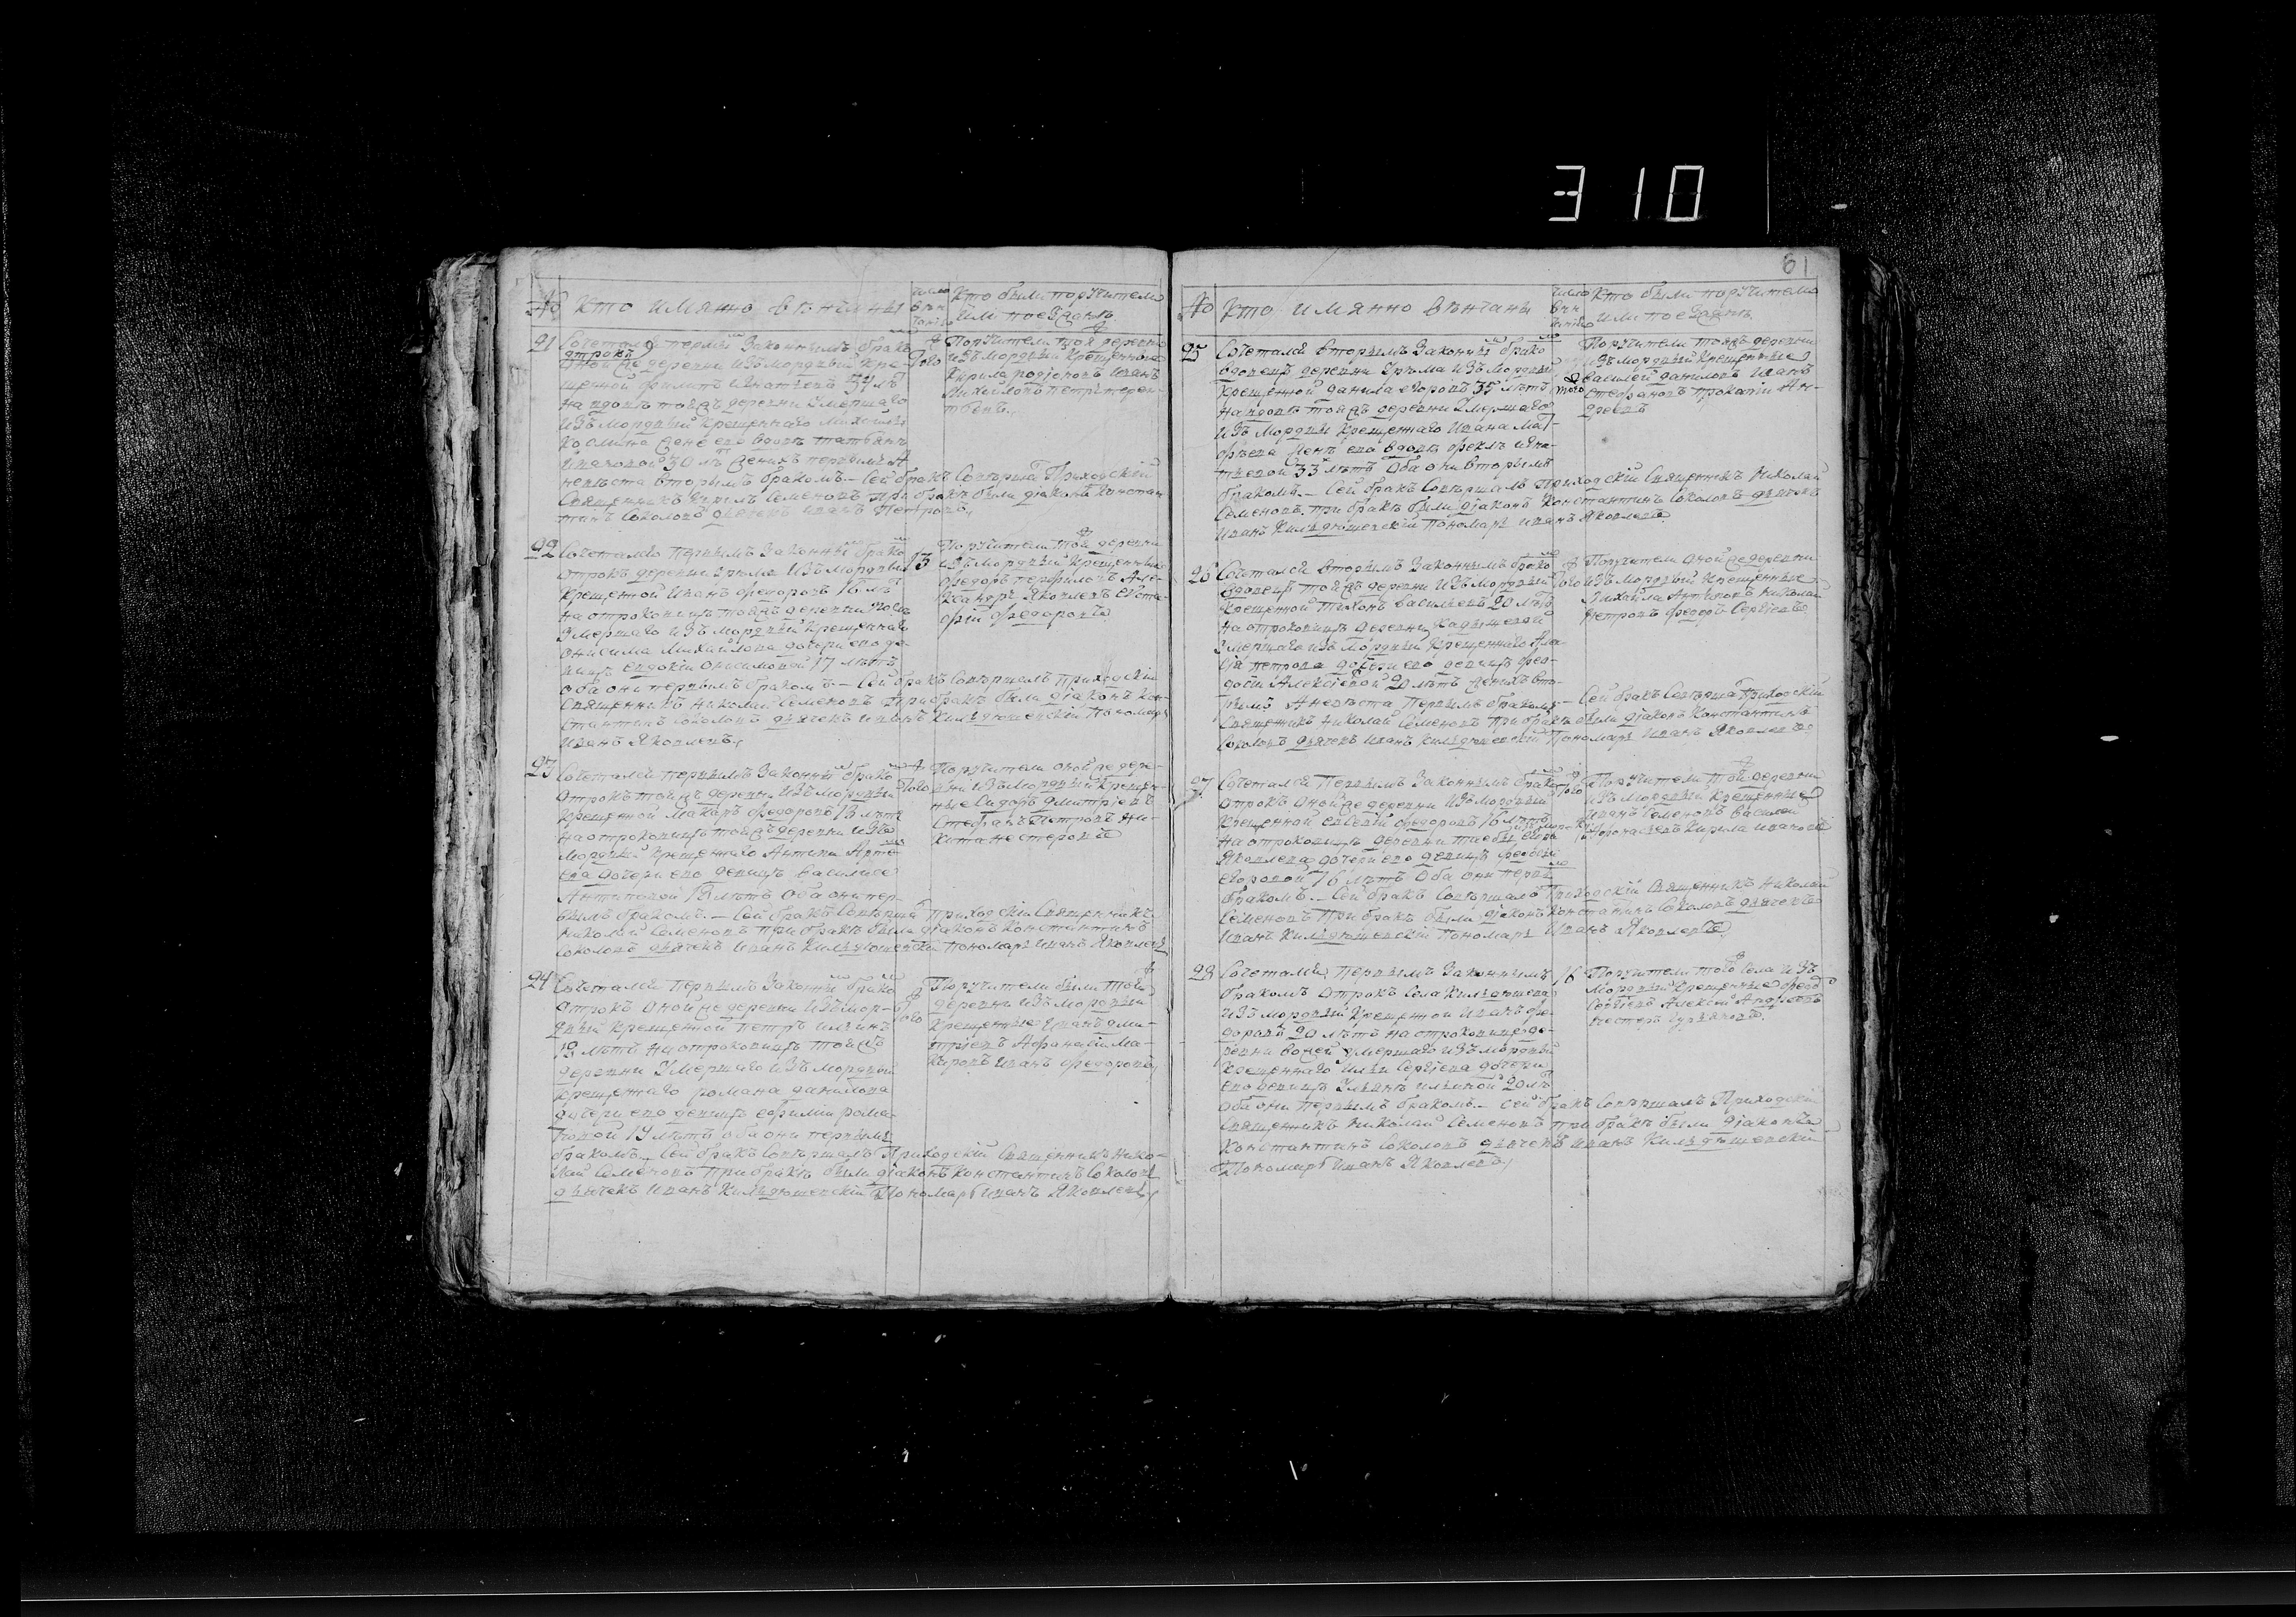 310
61
№ Кто имянно венчаны
число венчаніевъ
Кто были поручители
или поезжанъ
21 Сочетался первымъ законнымъ бракомъ
отрокъ
оной же деревни изъ мордвы кре-
щенной Филипъ Игнатьевъ лѣтъ
на вдовѣ тойжъ деревни умершаго
изъ мордвы крещеннаго
жене его вдовѣ татьянѣ
30 лѣ женихъ первымъ а
невѣста вторымъ бракомъ. – Сей бракъ совершалъ приходскій
Священникъ Семеновъ при бракѣ были діаконъ Констан
тинъ Соколовъ дьячекъ Иванъ Петровъ
того
Поручители той деревни
изъ мордвы крещенныя
Кирила родіоновъ Иванъ
Михайловъ Петръ терен-
тьевъ
22 Сочетался первымъ законнымъ бракомъ
отрокъ деревни урюма изъ мордвы
крещенной Иванъ Федоровъ 16 лѣ
на отроковицѣ тойжъ деревни
умершаго изъ мордвы крещеннаго
Онисима Михайлова дочери его де-
вицѣ Евдокіи Онисимовой 17 лѣтъ
оба они первымъ бракомъ – Сей бракъ совершалъ приходскій
Священникъ Николай Семеновъ при бракѣ были діаконъ Кон-
стантинъ Соколовъ дьячекъ Иванъ Кильдюшевскій Пономарь
Иванъ Яковлевъ
13
Поручители той деревни
изъ мордвы крещенныя
Федоръ перфиловъ Але-
ксандръ Яковлевъ Евста-
фій Федоровъ
23 Сочетался первымъ законнымъ бракомъ
отрокъ тойжъ деревни изъ мордвы
крещенной Макаръ Федоровъ 18 лѣтъ
на отроковицѣ тойжъ деревни изъ
мордвы крещеннаго Антипа Арте
ева дочери его девицѣ василисе
Антиповой 18 лѣтъ оба они пер-
вымъ бракомъ. – Сей бракъ совершалъ приходскій Священникъ
Николай Семеновъ при бракѣ были діаконъ Константинъ
Соколовъ дьячекъ Иванъ Кильдюшевскій пономарь Иванъ Яковлевъ
того
Поручители оной же дере-
вни изъ мордвы крещен-
ные Сидоръ дмитріевъ
Стефанъ Петровъ Ни-
кита нестеровъ
24 Сочетался первымъ законнымъ бракомъ
отрокъ оной же деревни изъ мор-
двы крещенной петръ ильинъ
18 лѣтъ на отроковицѣ тойжъ
деревни умершаго изъ мордвы
крещеннаго романа данилова
дочери его девицѣ ефиміи рома-
новой 19 лѣтъ оба они первымъ
бракомъ. Сей бракъ совершалъ Приходскій Священникъ Нико-
лай Семеновъ при бракѣ были діаконъ Константинъ Соколовъ
дьячекъ Иванъ Кильдюшевскій Пономарь Иванъ Яковлевъ
того
Поручители были той
деревни изъ мордвы
крещенные Иванъ дми-
тріевъ Афанасій Ма-
каровъ Иванъ Федоровъ
№ Кто имянно венчаны
число венчаніевъ
Кто были поручители
или поезжанъ
25 Сочетался вторымъ законнымъ бракомъ
вдовецъ деревни Урюма изъ мордвы
крещенной данила егоровъ 35 лѣтъ
на вдовѣ тойжъ деревни умершаго
изъ мордвы крещеннаго Ивана Мат-
фѣева женѣ его вдовѣ феклѣ Игна-
тьевой 33 лѣтъ Оба они вторымъ
бракомъ. – Сей бракъ совершалъ Приходскій Священникъ Николай
Семеновъ при бракѣ были діаконъ Константинъ Соколовъ дьячекъ
Иванъ Кильдюшевскій Пономарь Иванъ Яковлевъ
того
Поручители тойжъ деревни
изъ мордвы крещенные
василей даниловъ Иванъ
Стефановъ прокапій Ан-
дреевъ
26 Сочетался вторымъ законнымъ бракомъ
вдовецъ тойжъ деревни изъ мордвы
крещенной тихонъ васильевъ 20 лѣтъ
на отроковицѣ деревни Кадышевой
умершаго изъ мордвы крещеннаго Але
ѣя петрова дочери его девицѣ Фео-
досіи Алексіевой 20 лѣтъ женихъ вто-
рымъ А невѣста первымъ бракомъ – Сей бракъ совершалъ приходскій
Священникъ Николай Семеновъ при бракѣ были діаконъ Константинъ
Соколовъ дьячекъ Иванъ Кильдюшевскій Пономарь Иванъ Яковлевъ
того
Поручители оной же деревни
изъ мордвы крещенные
Михайла Антиповъ Николай
петровъ Федоръ Сергіевъ
27 Сочетался первымъ законнымъ бракомъ
отрокъ оной же деревни изъ мордвы
крещенной евсевій федоровъ 16 лѣтъ
на отроковицѣ деревни таебы изъ мордвы егора
Яковлева дочери его девицѣ
егоровой 16 лѣтъ Оба они первымъ
бракомъ. – Сей бракъ совершалъ Приходскій Священникъ Николай
Семеновъ При бракѣ были діаконъ Константинъ Соколовъ дьячекъ
Иванъ Кильдюшевскій Пономарь Иванъ Яковлевъ
того
Поручители той деревни
изъ мордвы крещенные
Иванъ Семеновъ василей
Афонасьевъ Кирила ивановъ
28 Сочетался первымъ законнымъ
бракомъ отрокъ села Кильдюшева
изъ мордвы крещенной Иванъ Фе-
доровъ 20 лѣтъ на отроковице де-
ревни умершаго изъ мордвы
крещеннаго Ильи Сергіева дочери
его девицѣ Ульянѣ ильиной 20 лѣ
оба они первымъ бракомъ. – Сей бракъ совершалъ Приходскій
Священникъ Николай Семеновъ при бракѣ были діаконъ
Константинъ Соколовъ дьячекъ Иванъ Кильдюшевскій
Пономарь Иванъ Яковлевъ
16
Поручители того села изъ
мордвы крещенные Федоръ
Сергіевъ Алексѣй Андреевъ
Нестеръ Гурьяновъ